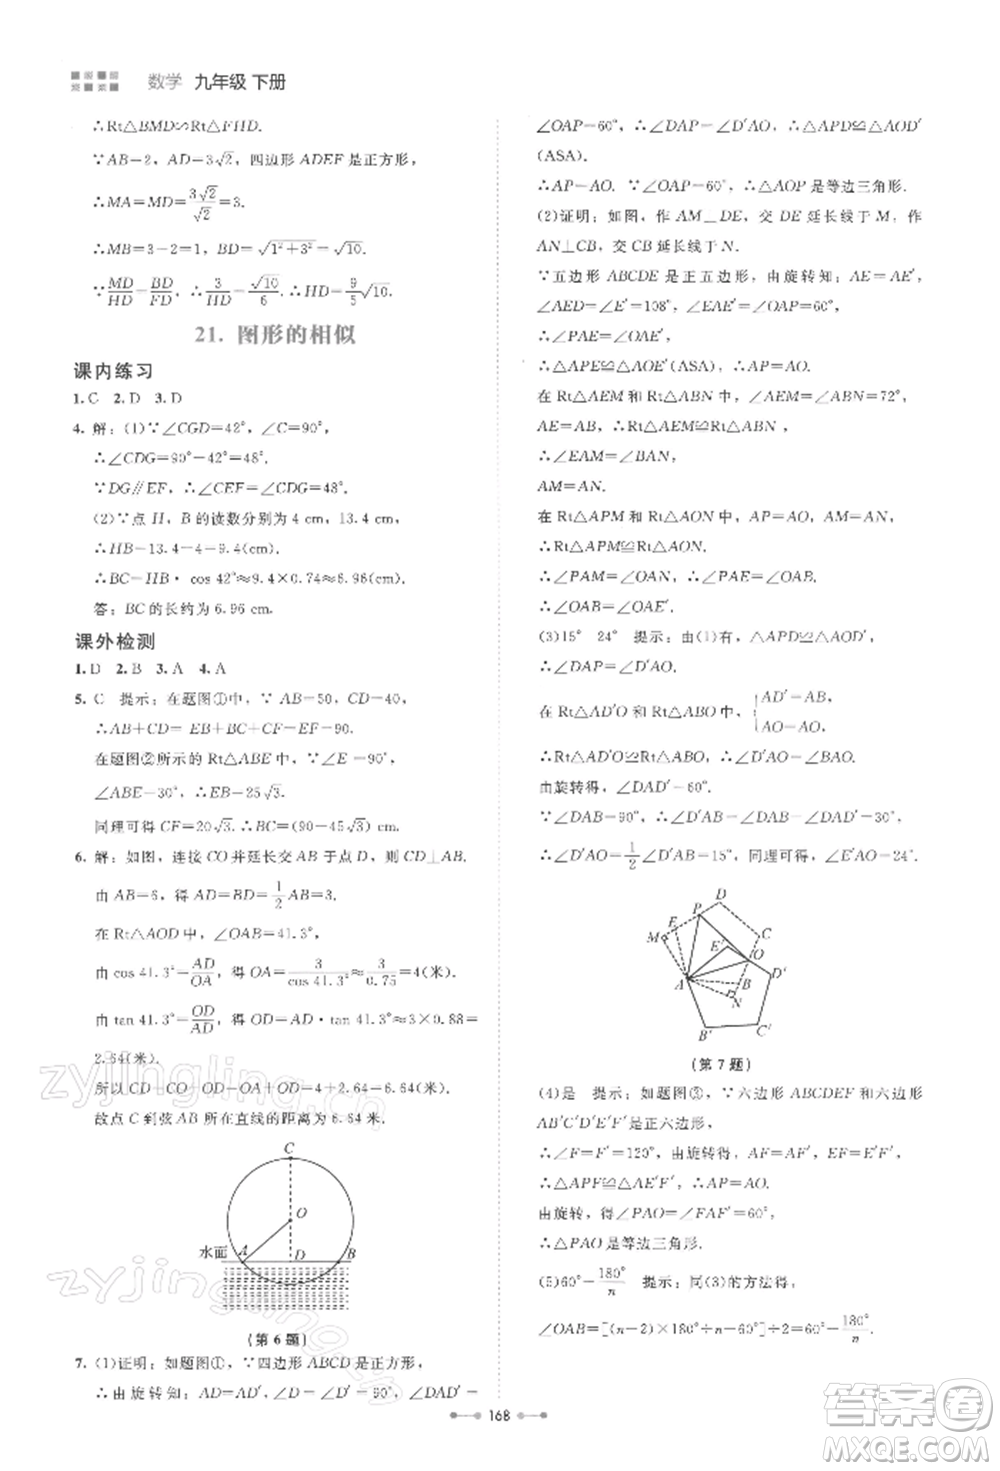 数学 九年级 下册
∴Rt△BMD∽Rt△FHD.
∵AB=2，AD=3√2，四边形 ADEF 是正方形，
∴MA=MD=3√2/√2=3.
∴MB=3-2=1，BD=√(1²+3²)=√10.
∵MD/HD=BD/FD，∴3/HD=√10/6.∴HD=9/5√10.
21. 图形的相似
课内练习
1.C 2.D 3.D
4. 解：(1)∵∠CGD=42°，∠C=90°，
∴∠CDG=90°-42°=48°.
∵DG∥EF，∴∠CEF=∠CDG=48°.
(2)∵点 H，B 的读数分别为 4 cm，13.4 cm，
∴HB=13.4-4=9.4(cm).
∴BC=HB·cos 42°≈9.4×0.74≈6.96(cm).
答：BC的长约为 6.96 cm.
课外检测
1.D 2.B 3.A 4.A
5. C 提示：在题图①中，∵AB=50，CD=40，
∴AB+CD=EB+BC+CF=EF=90.
在题图②所示的 Rt△ABE 中，∵∠E=90°，
∠ABE=30°，∴EB=25√3.
同理可得 CF=20√3.∴BC=(90-45√3)cm.
6. 解：如图，连接 CO 并延长交 AB 于点 D，则 CD⊥AB.
由 AB=6，得 AD=BD=1/2AB=3.
在 Rt△AOD 中，∠OAB=41.3°，
由 cos 41.3°=AD/OA，得 OA=3/cos 41.3°≈3/0.75=4(米).
由 tan 41.3°=OD/AD，得 OD=AD·tan 41.3°≈3×0.88=
2.64(米).
所以 CD=CO+OD=AO+OD=4+2.64=6.64(米).
故点 C 到弦 AB 所在直线的距离为 6.64 米.
C
O
水面 A D B
(第 6 题)
7. (1)证明：如题图①，∵四边形 ABCD 是正方形，
∴由旋转知：AD=AD′，∠D=∠D′=90°，∠DAD′=
∠OAP=60°，∴∠DAP=∠D′AO，∴△APD≌△AOD′
(ASA).
∴AP=AO. 又∵∠OAP=60°，∴△AOP是等边三角形.
(2)证明：如图，作 AM⊥DE，交 DE 延长线于 M，作
AN⊥CB，交 CB 延长线于 N.
∵五边形 ABCDE 是正五边形，由旋转知：AE=AE′，
∠AED=∠E′=108°，∠EAE′=∠OAP=60°.
∴∠PAE=∠OAE′.
∴△APE≌△AOE′(ASA).∴AP=AO.
在 Rt△AEM 和 Rt△ABN 中，∠AEM=∠ABN=72°，
AE=AB，∴Rt△AEM≌Rt△ABN.
∴∠EAM=∠BAN，
AM=AN.
在 Rt△APM 和 Rt△AON 中，AP=AO，AM=AN，
∴Rt△APM≌Rt△AON.
∴∠PAM=∠OAN.∴∠PAE=∠OAB.
∴∠OAB=∠OAE′.
(3)15° 24° 提示：由(1)有，△APD≌△AOD′，
∴∠DAP=∠D′AO.
在 Rt△AD′O 和 Rt△ABO 中，{AD′=AB，
AO=AO.
∴Rt△AD′O≌Rt△ABO.∴∠D′AO=∠BAO.
由旋转得，∠DAD′=60°.
∵∠DAB=90°，∴∠D′AB=∠DAB-∠DAD′=30°.
∴∠D′AO=1/2∠D′AB=15°，同理可得，∠E′AO=24°.
P D
M E C
E′ O
D′
A B
N
B′ C′
(第 7 题)
(4)是 提示：如题图③，∵六边形 ABCDEF 和六边形
AB′C′D′E′F′是正六边形，
∴∠F=∠F′=120°，由旋转得，AF=AF′，∠EAF=∠E′AF′.
∴△APF≌△AE′F′.∴∠PAF=∠E′AF′，AP=AO.
由旋转，得∠PAO=∠FAF′=60°，
∴△PAO是等边三角形.
(5)60°-180°/n 提示：同(3)的方法得，
∠OAB=[(n-2)×180°÷n-60°]÷2=60°-180°/n.
168
zyjingling.cn
zyjingling.cn
答案圈
MXQE.COM